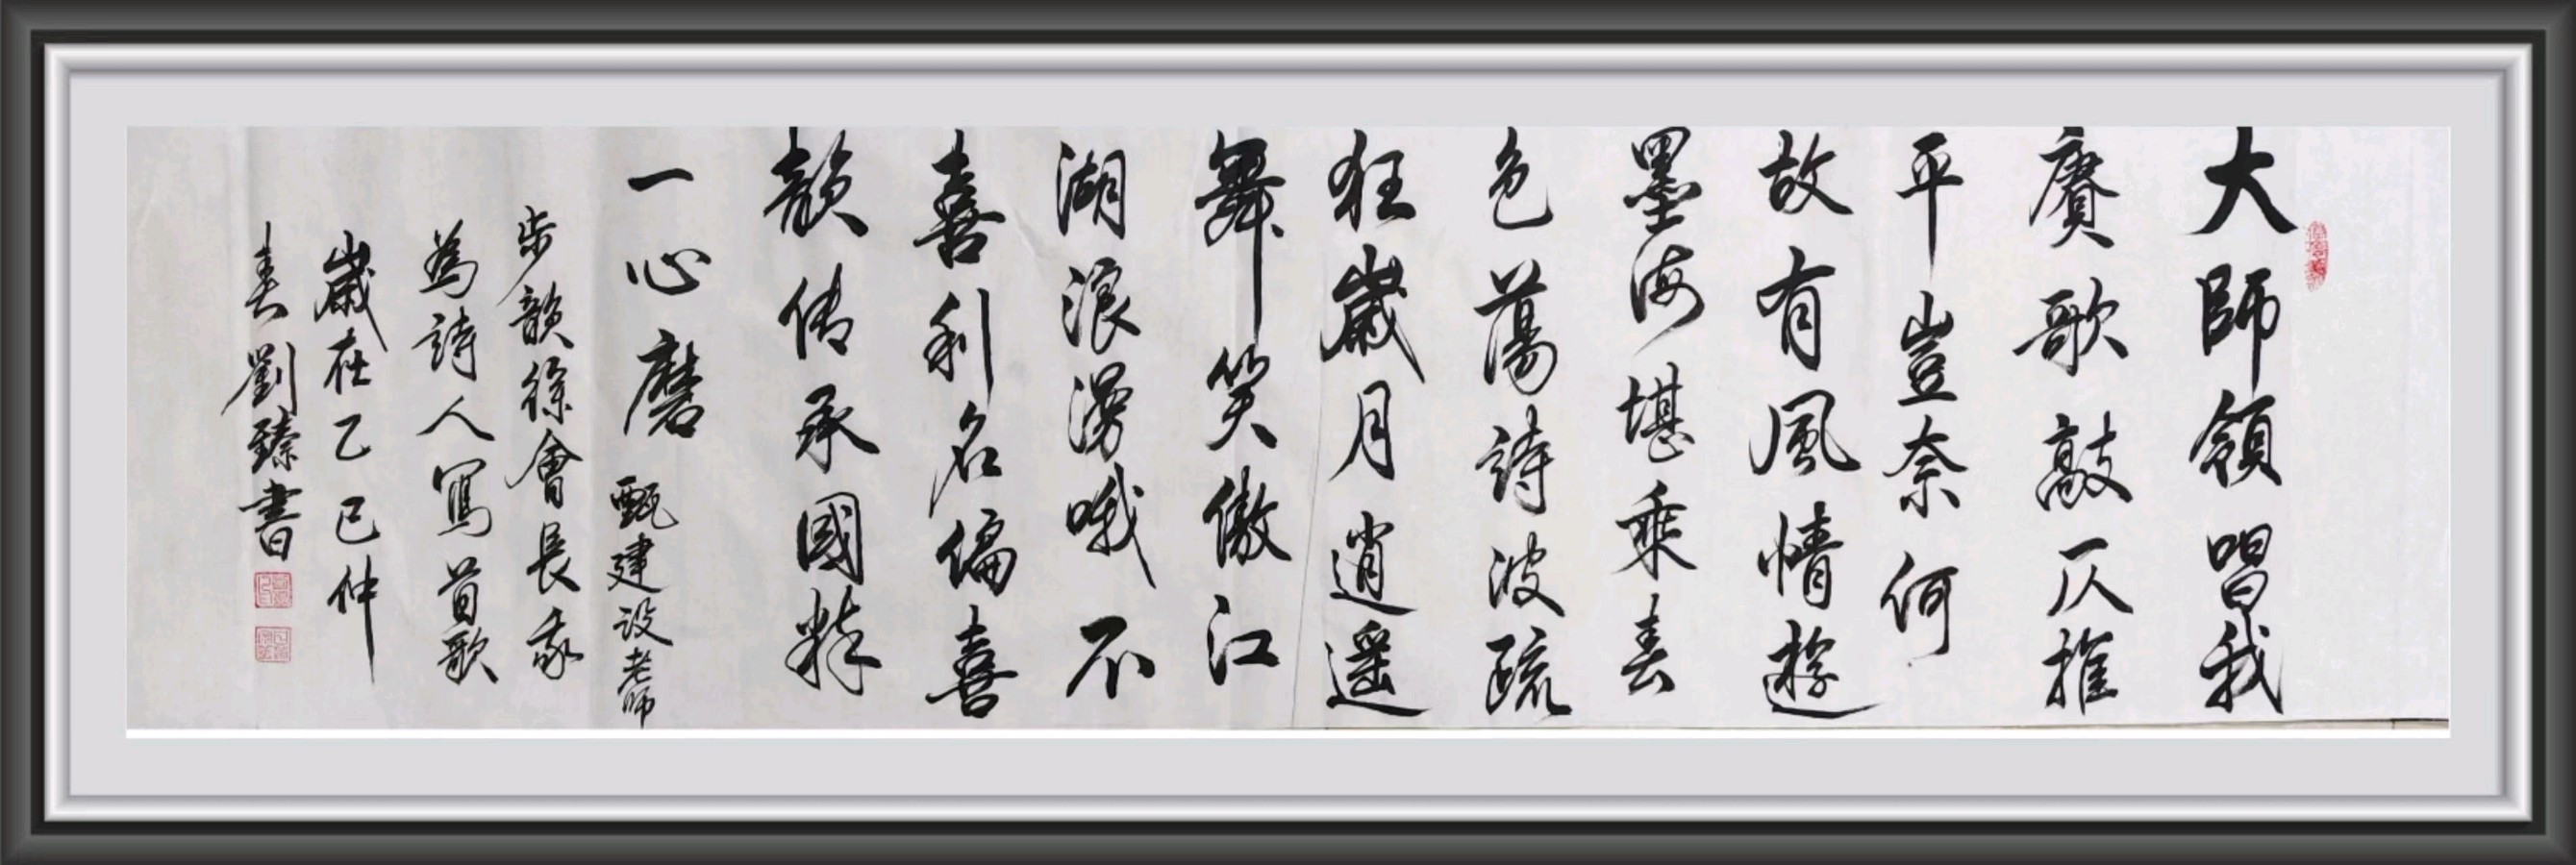 大師領唱我
賡歌敲仄推
平豈奈何
故有風情遊
墨海堪乘春
色蕩詩波疏
狂歲月逍遥
舞笑傲江
湖浪漫哦不
喜利名偏喜
韻传承國粹
一心磨 甄建设老师
步韻徐會長我
為詩人寫首歌
歲在乙巳仲
春劉臻書